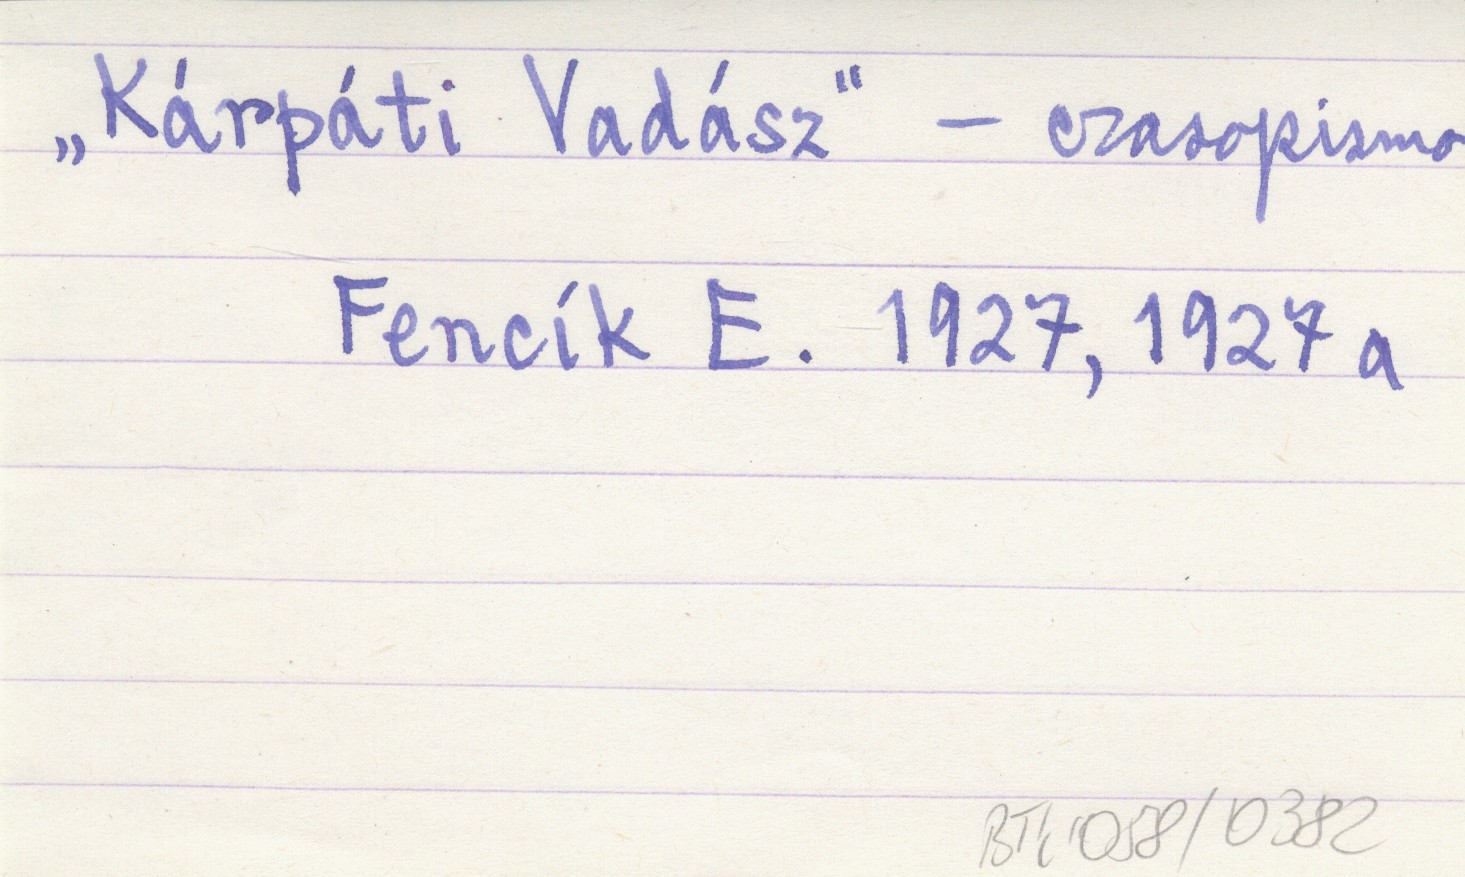 „Kárpáti Vadász“ – czasopismo
Fencík E. 1927, 1927a
058/0382